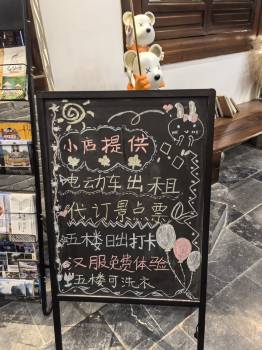 小店提供
电动车出租
代订景点票
五楼日出打卡
汉服免费体验
五楼可洗衣